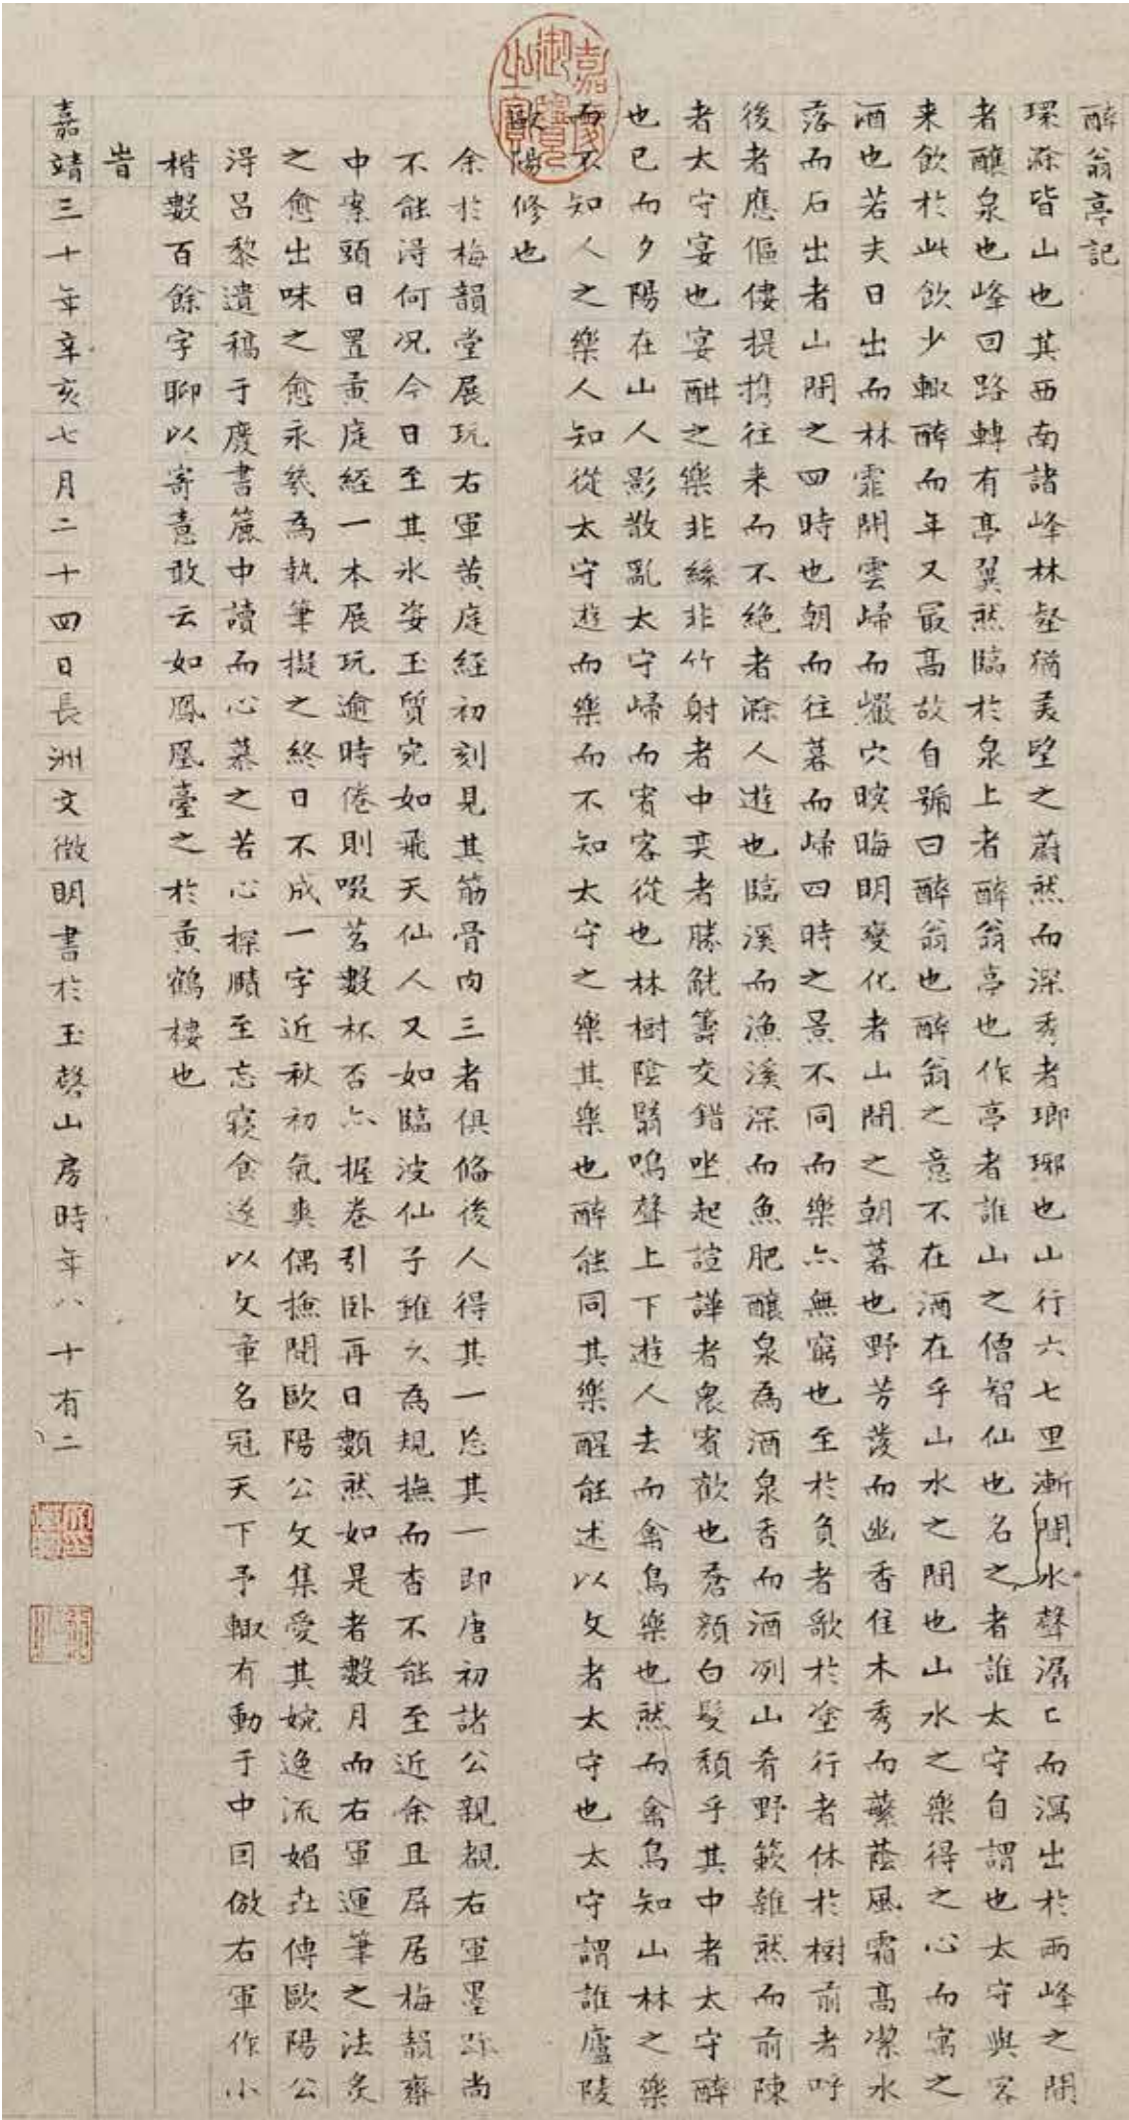 醉翁亭記
環滁皆山也其西南諸峰林壑猶美望之蔚然而深秀者瑯琊也山行六七里漸聞水聲潺〻而瀉出於兩峰之間
者釀泉也峰回路轉有亭翼然臨於泉上者醉翁亭也作亭者誰山之僧智仙也名之者誰太守自謂也太守與客
来飲於此飲少輒醉而年又最高故自號曰醉翁也醉翁之意不在酒在乎山水之間也山水之樂得之心而寓之
酒也若夫日出而林霏開雲歸而巖穴暝晦明變化者山間之朝暮也野芳發而幽香佳木秀而蘩蔭風霜高潔水
落而石出者山間之四時也朝而往暮而歸四時之景不同而樂亦無窮也至於負者歌於塗行者休於樹前者呼
後者應傴僂提携往来而不絶者滁人遊也臨溪而漁溪深而魚肥釀泉為酒泉香而酒冽山肴野蔌雜然而前陳
者太守宴也宴酣之樂非絲非竹射者中奕者勝觥籌交錯坐起諠譁者衆賓歡也蒼顏白髮頹乎其中者太守醉
也已而夕陽在山人影散亂太守歸而賓客從也林樹陰翳鳴聲上下遊人去而禽鳥樂也然而禽鳥知山林之樂
而不知人之樂人知從太守遊而樂而不知太守之樂其樂也醉能同其樂醒能述以文者太守也太守謂誰廬陵
歐陽修也
余於梅韻堂展玩右軍黄庭經初刻見其筋骨肉三者俱俻後人得其一忘其一即唐初諸公親覩右軍墨跡尚
不能淂何况今日至其氷姿玉質宛如飛天仙人又如臨波仙子雖久為規撫而杳不能至近余且屏居梅韻齋
中案頭日置黄庭経一本展玩逾時倦則啜茗數杯否亦握卷引卧再日數然如是者數月而右軍運筆之法炙
之愈出味之愈永㡬為執筆擬之終日不成一字近秋初氣爽偶撿閱歐陽公文集愛其婉逸流媚世傳歐陽公
淂呂黎遺稿于廢書簏中讀而心慕之苦心探賾至忘寝食遂以文章名冠天下予輒有動于中因倣右軍作小
楷數百餘字聊以寄意敢云如鳳凰臺之於黄鶴樓也
旹
嘉靖三十年辛亥七月二十四日長洲文徴明書於玉磬山房時年八十有二
嘉慶御覽之寶